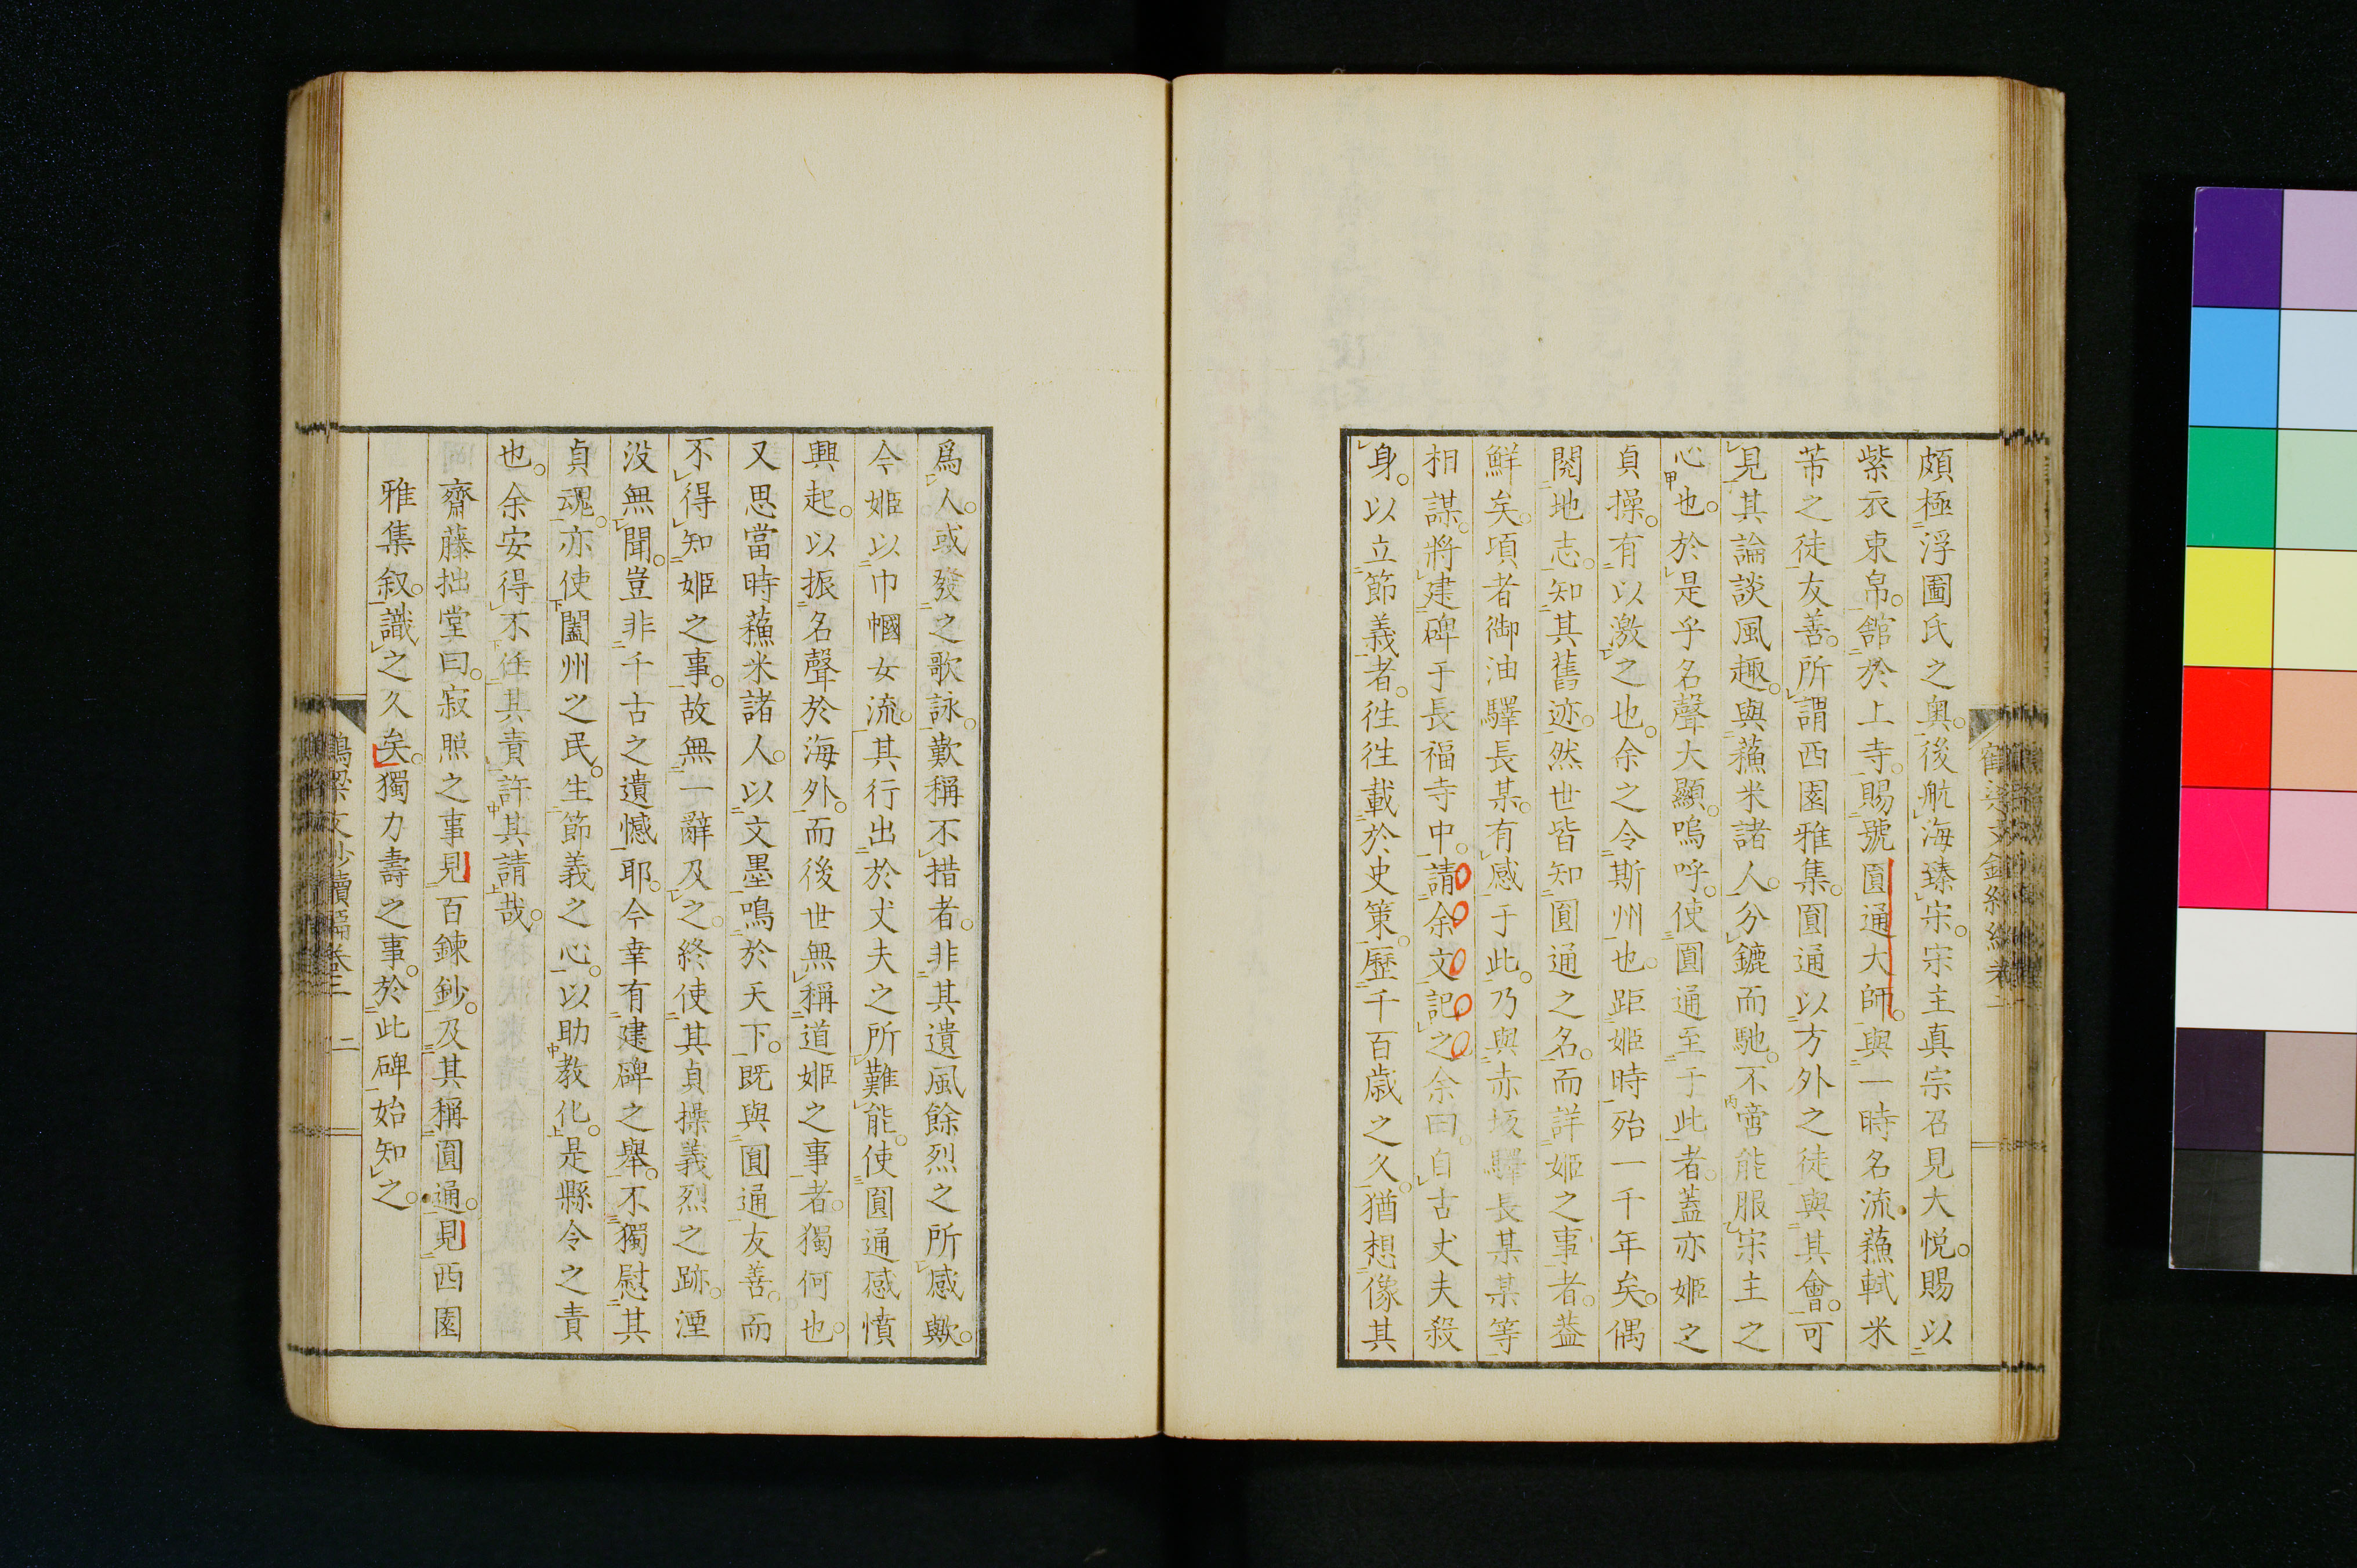 頗極浮圖氏之奧。後航海臻宋。宋主真宗召見大悅。賜以
紫衣束帛。舘於上寺。賜號圓通大師。與一時名流蘓軾米
芾之徒友善。所謂西園雅集。圓通以方外之徒與其會。可
見其論談風趣。與蘓米諸人。分鑣而馳。不啻能服宋主之
心也。於是乎名聲大顯。嗚呼。使圓通至于此者。蓋亦姬之
貞操。有以激之也。余之令斯州也。距姬時殆一千年矣。偶
閱地志。知其舊迹。然世皆知圓通之名。而詳姬之事者。蓋
鮮矣。項者御油驛長某。有感于此。乃與赤坂驛長某某等
相謀。將建碑于長福寺中。請余文記之。余曰。自古丈夫殺
身。以立節義者。徃徃載於史策。歷千百歲之久。猶想像其
爲人。或發之歌詠。歎稱不措者。非其遺風餘烈之所感歟。
今姬以巾幗女流。其行出於丈夫之所難能。使圓通感憤
興起。以振名聲於海外。而後世無稱道姬之事者。獨何也。
又思當時蘓米諸人。以文墨鳴於天下。既與圓通友善。而
不得知姬之事。故無一辭及之。終使其貞操義烈之跡。湮
沒無聞。豈非千古之遺憾耶。今幸有建碑之舉。不獨慰其
貞魂。亦使闔州之民。生節義之心。以助教化。是縣令之責
也。余安得不任其責許其請哉。
齋藤拙堂曰。寂照之事見百鍊鈔。及其稱圓通。見西園
雅集叙。識之久矣。獨力壽之事。於此碑始知之。
鶴梁文鈔續編卷二　二